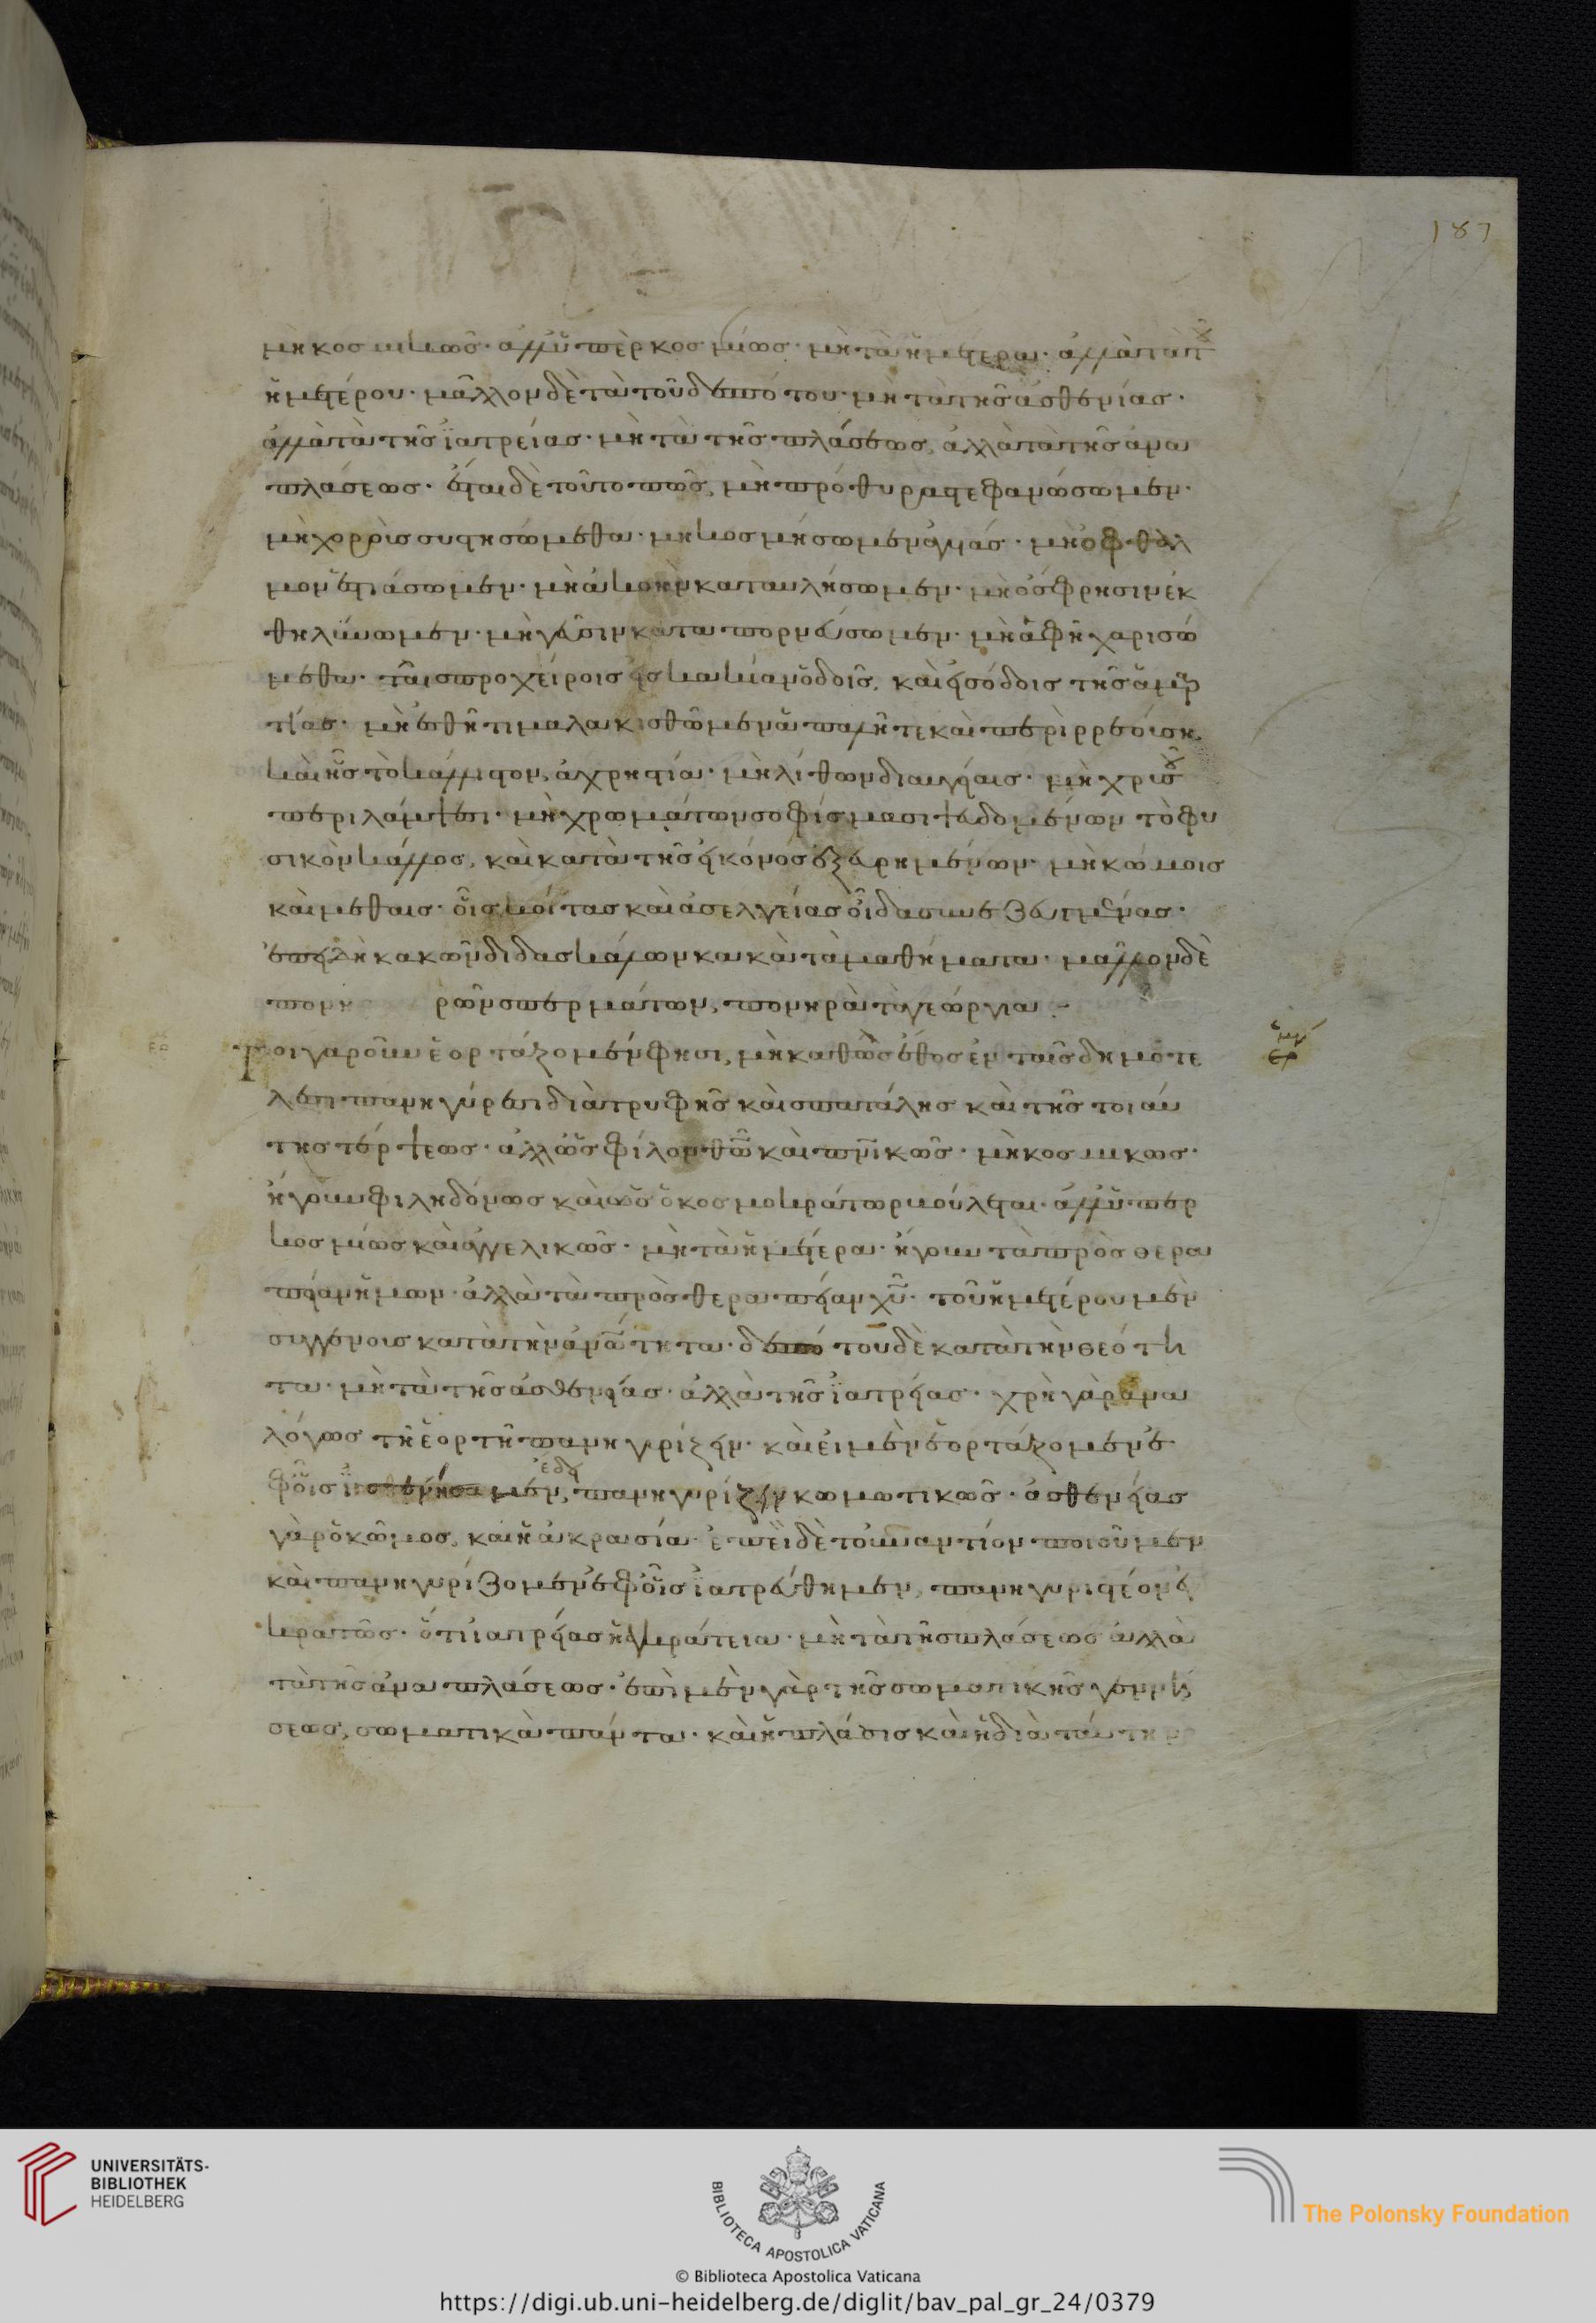 187
μὴ κοσμικῶς· ἀλλ' ὑπερκοσμίως· μὴ τὰ ἡμέτερα· ἀλλὰ τὰ τοῦ
ἡμετέρου· μᾶλλον δὲ τὰ τοῦ δεσπότου· μὴ τὰ τῆς ἀσθενίας·
ἀλλὰ τὰ τῆς ἰατρείας· μὴ τὰ τῆς πλάσεως, ἀλλὰ τὰ τῆς ἀνα
πλάσεως· ἔσται δὲ τοῦτο πῶς, μὴ πρόθυρα στεφανώσωμεν·
μὴ χοροὺς συστησώμεθα· μὴ κοσμήσωμεν ἀγυιάς· μὴ ὀφθαλ
μὸν ἑστιάσωμεν· μὴ ἀκοὴν καταυλήσωμεν· μὴ ὄσφρησιν ἐκ
θηλύνωμεν· μὴ γεῦσιν καταπορνεύσωμεν· μὴ ἁφῇ χαρισώ
μεθα· ταῖς προχείροις εἰς κακίαν ὁδοῖς, καὶ εἰσόδοις τῆς ἁμαρ
τίας· μὴ ἐσθῆτι μαλακισθῶμεν ἁπαλῇ τε καὶ περιρρεούσῃ,
καὶ ἧς τὸ κάλλιστον, ἀχρηστία· μὴ λίθων διαυγείαις· μὴ χρυσοῦ
περιλάμψεσι· μὴ χρωμάτων σοφίσμασι ψευδομένων τὸ φυ
σικὸν κάλλος, καὶ κατὰ τῆς εἰκόνος ἐξευρημένων· μὴ κώμοις
καὶ μέθαις· οἷς κοίτας καὶ ἀσελγείας οἶδα συνεζευγμένας·
ἐπειδὴ κακῶν διδασκάλων κακὰ τὰ μαθήματα· μᾶλλον δὲ
πονη ρῶν σπερμάτων, πονηρὰ τὰ γεώργια :-
Τοιγαροῦν ἑορτάζομεν φησι, μὴ καθὼς ἔθος ἐν ταῖς δημοτε
λέσι πανηγύρεσι διὰ τρυφῆς καὶ σπατάλης καὶ τῆς τοιαύ
της τέρψεως· ἀλλ' ὡς φίλον θῶ καὶ πνικῶς· μὴ κοσμικῶς·
ἤγουν φιληδόνως καὶ ὡς ὁ κοσμοκράτωρ βούλεται· ἀλλ' ὑπερ
κοσμίως καὶ ἀγγελικῶς· μὴ τὰ ἡμέτερα· ἤγουν τὰ πρὸς θερα
πείαν ἡμῶν· ἀλλὰ τὰ πρὸς θεραπείαν χυ· τοῦ ἡμετέρου μὲν
συγγενοῦς κατὰ τὴν ἀνότητα· δεσπότου δὲ κατὰ τὴν θεότη
τα· μὴ τὰ τῆς ἀσθενείας· ἀλλὰ τῆς ἰατρείας· χρὴ γὰρ ἀνα
λόγως τῇ ἑορτῇ πανηγυρίζειν· καὶ εἰ μὲν ἑορτάζομεν ἐ
φ' οἷς ἠσθενήσαμεν, ἔδει πανηγυρίζειν κωμωτικῶς· ἀσθενείας
γὰρ ὁ κῶμος, καὶ ἡ ἀκρασία· ἐπεὶ δὲ τοὐναντίον ποιοῦμεν
καὶ πανηγυρίζομεν ἐφ' οἷς ἰατρεύθημεν, πανηγυριστέον ἐγ
κρατῶς· ὅτι ἰατρείας ἡ ἐγκράτεια· μὴ τὰ τῆς πλάσεως ἀλλὰ
τὰ τῆς ἀναπλάσεως· ἐπὶ μὲν γὰρ τῆς σωματικῆς γεννή
σεως, σωματικὰ πάντα· καὶ ἡ πλάσις καὶ ἡ διὰ ταύτην
UNIVERSITÄTS-
BIBLIOTHEK
HEIDELBERG
BIBLIOTECA APOSTOLICA VATICANA
The Polonsky Foundation
© Biblioteca Apostolica Vaticana
https://digi.ub.uni-heidelberg.de/diglit/bav_pal_gr_24/0379